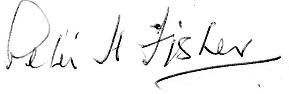 Peter H Fisher